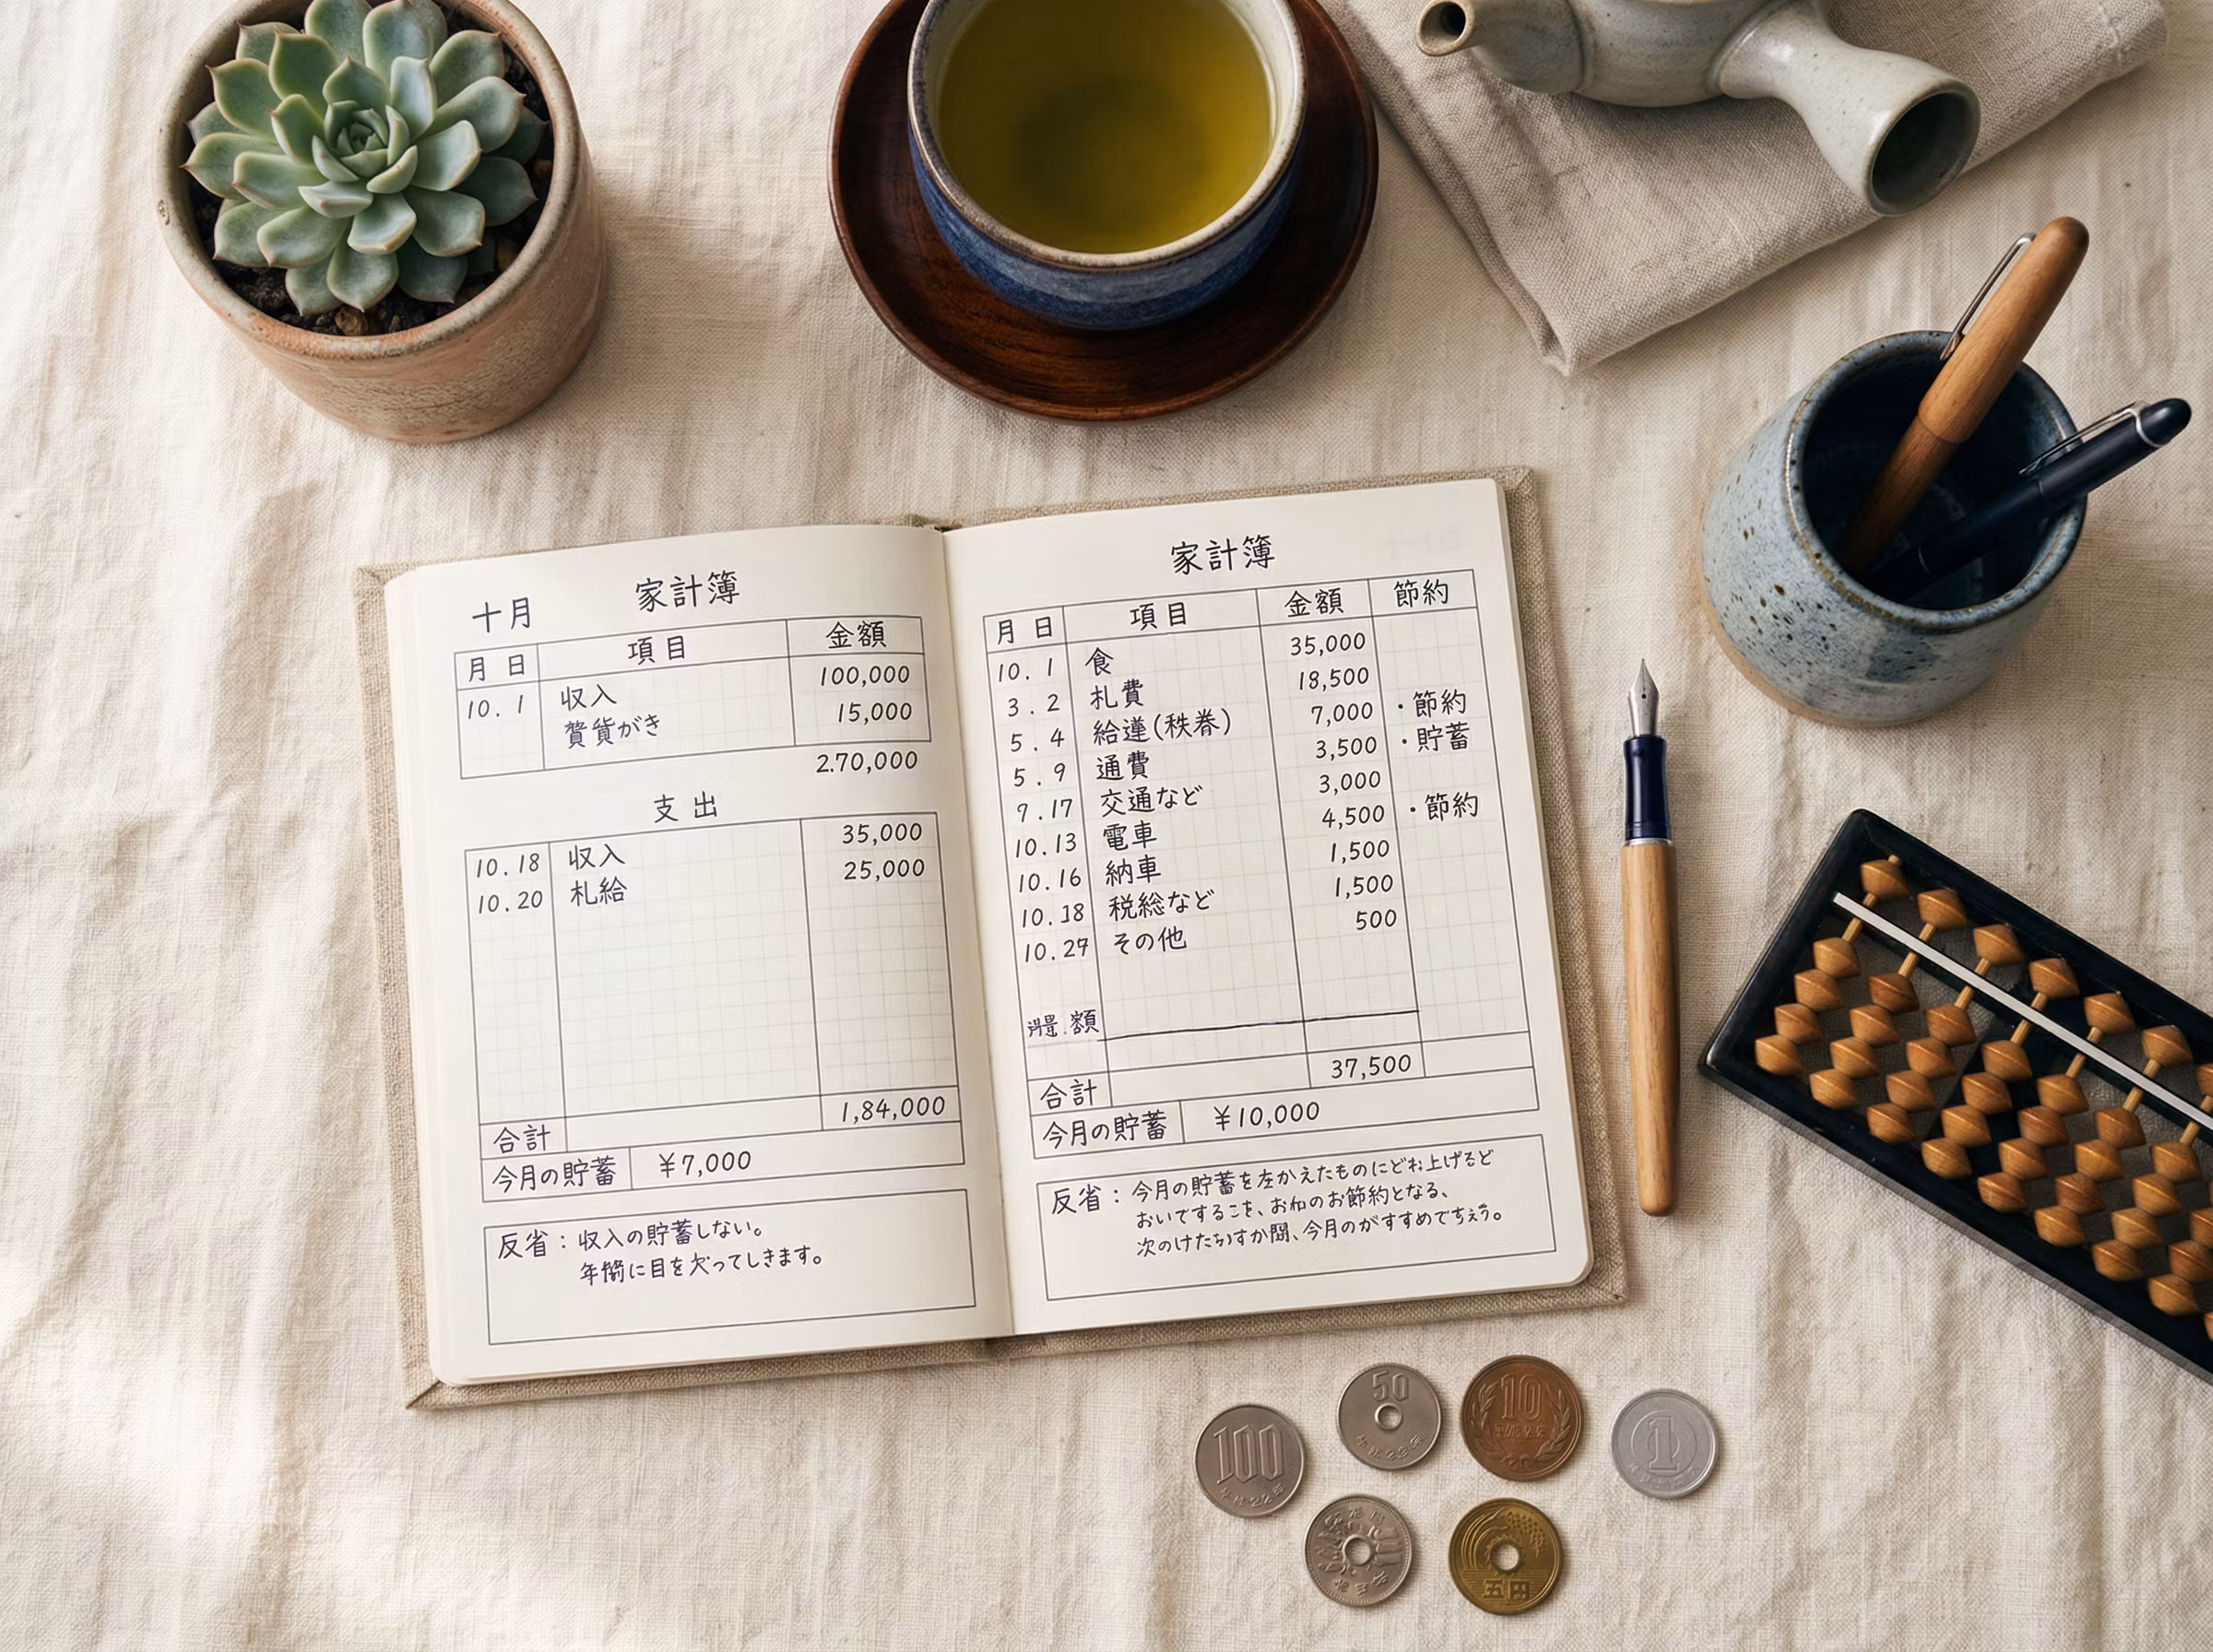 十月 家計簿
月 日 項目 金額
10. 1 収入 100,000
がき 15,000
2.70,000
支出
35,000
10. 18 収入 25,000
10. 20 札給
合計 1,84,000
今月の貯蓄 ¥7,000
反省：収入の貯蓄しない。
に目を欠ってしきます。
家計簿
月 日 項目 金額 節約
10. 1 食 35,000
3 . 2 札費 18,500
5 . 4 給 7,000 ・節約
5 . 9 通費 3,500 ・貯蓄
9.17 交通など 3,000
10.13 電車 4,500 ・節約
10.16 納車 1,500
10.18 税総など 1,500
10.27 その他 500
額
合計 37,500
今月の貯蓄 ¥10,000
反省：今月の貯蓄を左かえたものにどれ上げるど
おいでするこを、おねのお節約となる、
次のけた、今月のがすすめで
100
50
10
1
五円